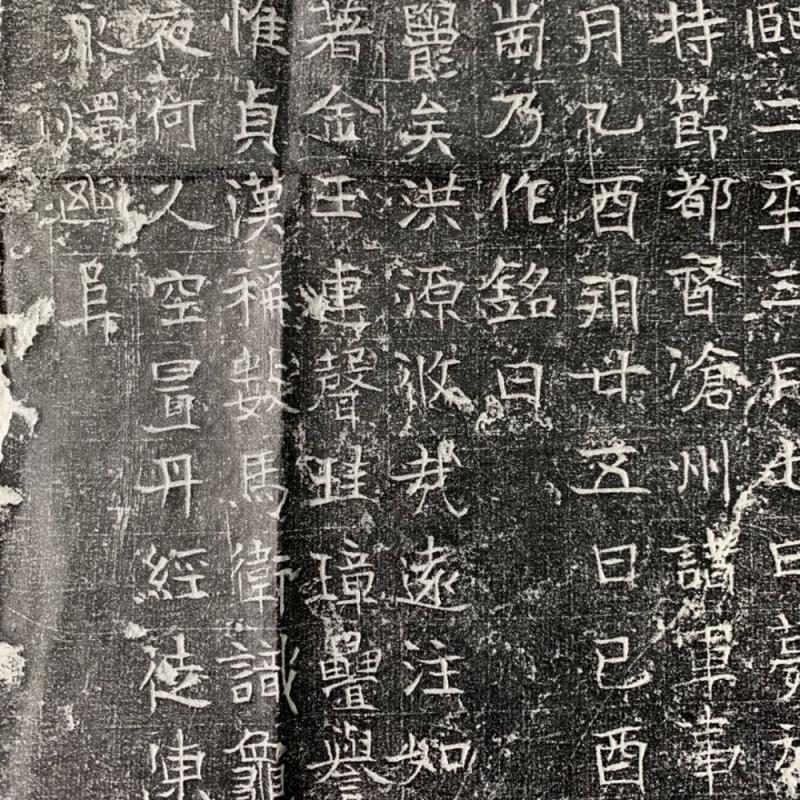 熙二年三月七日夢
持節都督滄州諸軍事
月乙酉朔廿五日己酉
崗乃作銘曰
鬱矣洪源攸哉遠注如
著金玉連聲珪璋疊譽
惟貞漢稱數馬衛識龜
夜何久空畺丹經徒東
永燭幽阜